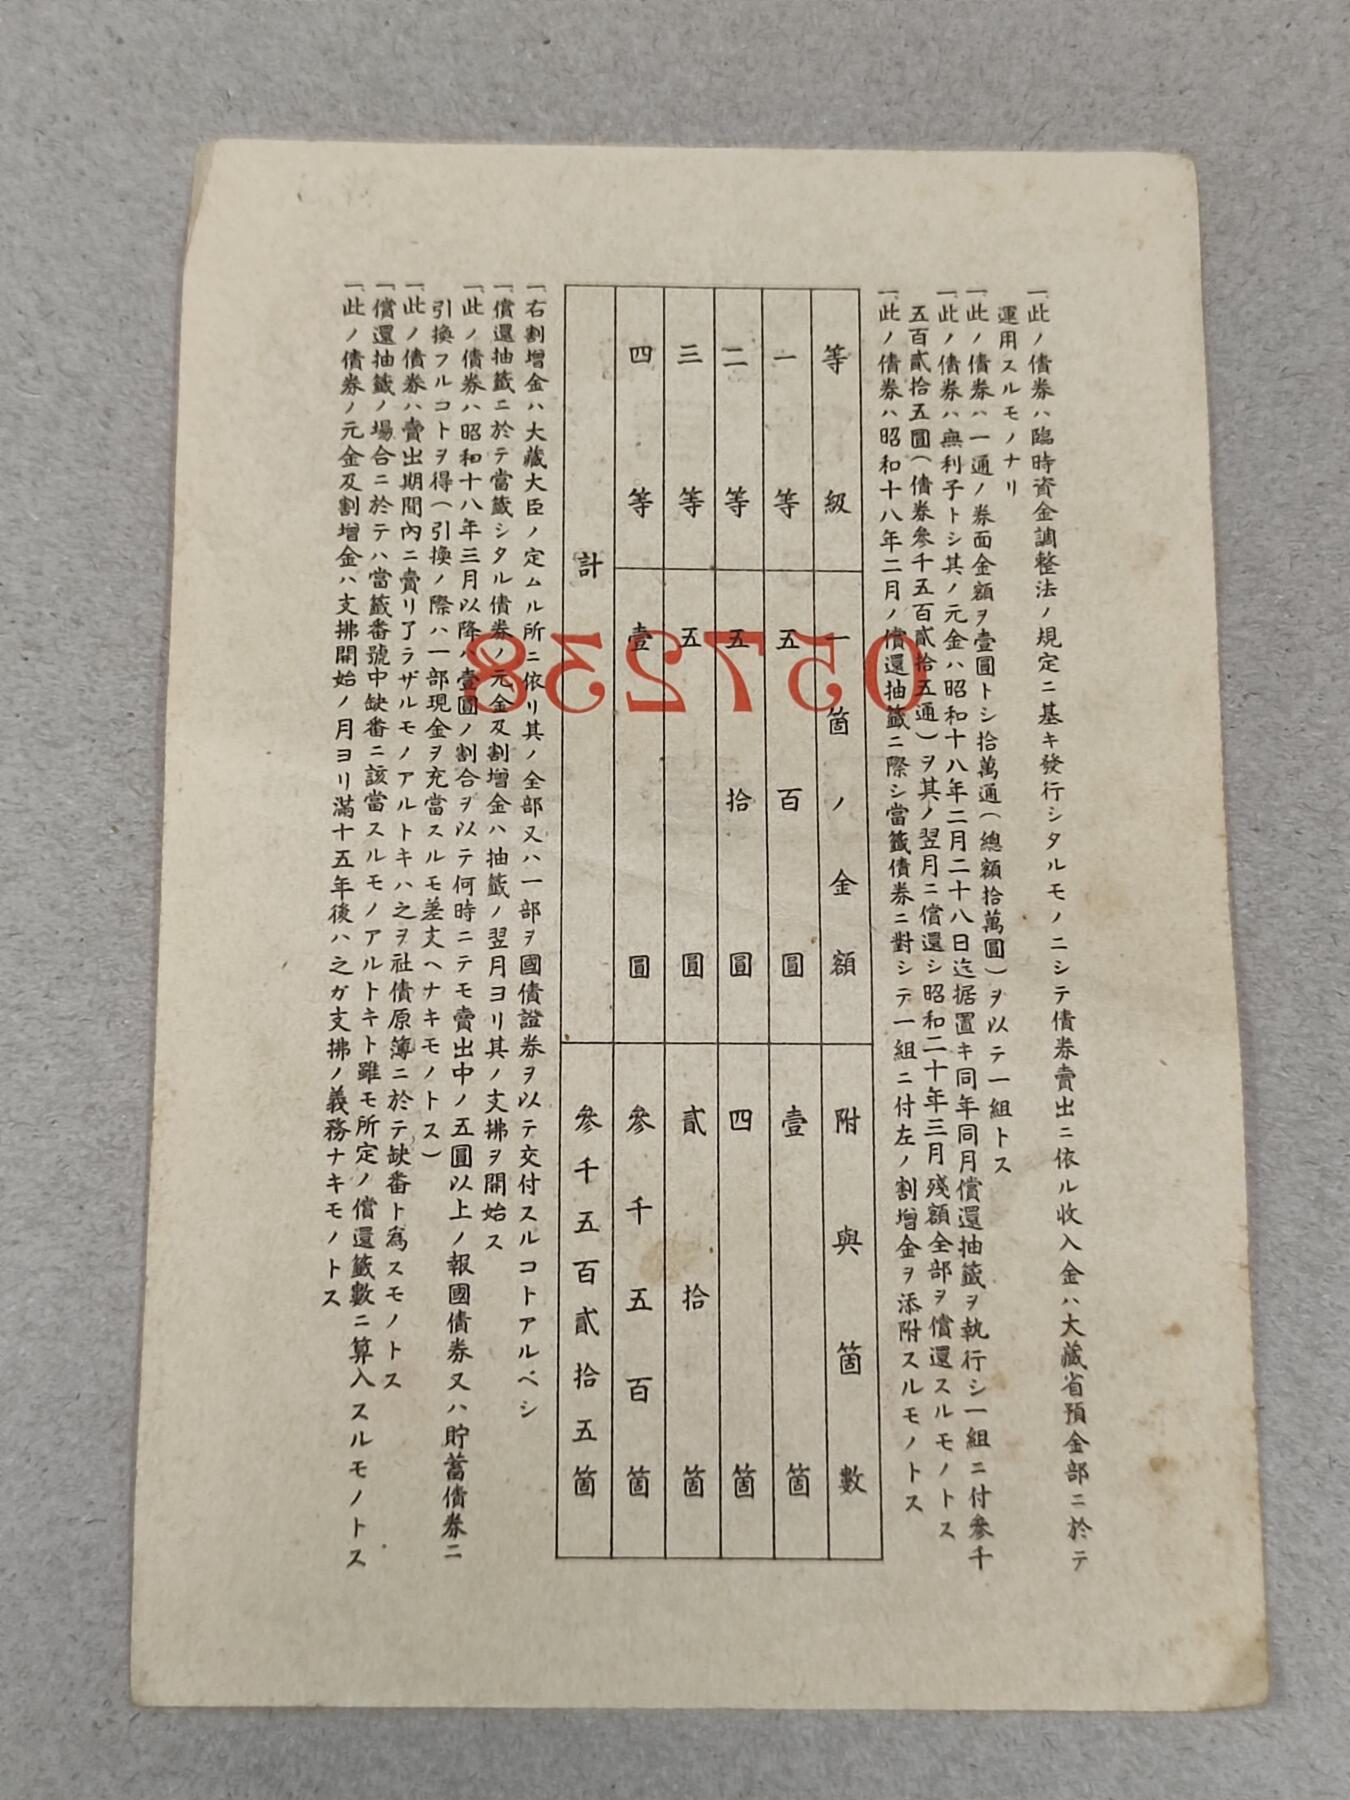 一、此ノ債券ハ臨時資金調整法ノ規定ニ基キ發行シタルモノニシテ債券賣出ニ依ル收入金ハ大藏省預金部ニ於テ
運用スルモノナリ
一、此ノ債券ハ一通ノ券面金額ヲ壹圓トシ拾萬通(總額拾萬圓)ヲ以テ一組トス
一、此ノ債券ハ無利子トシ其ノ元金ハ昭和十八年二月二十八日迄据置キ同年同月償還抽籤ヲ執行シ一組ニ付參千
五百貳拾五圓(債券參千五百貳拾五通)ヲ其ノ翌月ニ償還シ昭和二十年三月殘額全部ヲ償還スルモノトス
一、此ノ債券ハ昭和十八年二月ノ償還抽籤ニ際シ當籤債券ニ對シテ一組ニ付左ノ割增金ヲ添附スルモノトス
等級 一箇ノ金額 附與箇數
一等 五百圓 壹箇
二等 五拾圓 四箇
三等 五圓 貳拾箇
四等 壹圓 參千五百箇
計 參千五百貳拾五箇
一、右割增金ハ大藏大臣ノ定ムル所ニ依リ其ノ全部又ハ一部ヲ國債證券ヲ以テ交付スルコトアルベシ
一、償還抽籤ニ於テ當籤シタル債券ノ元金及割增金ハ抽籤ノ翌月ヨリ其ノ支拂ヲ開始ス
一、此ノ債券ハ昭和十八年三月以降ハ壹圓ノ割合ヲ以テ何時ニテモ賣出中ノ五圓以上ノ報國債券又ハ貯蓄債券ニ
引換フルコトヲ得(引換ノ際ハ一部現金ヲ充當スルモ差支ヘナキモノトス)
一、此ノ債券ハ賣出期間內ニ賣リ了ラザルモノアルトキハ之ヲ社債原簿ニ於テ缺番ト爲スモノトス
一、償還抽籤ノ場合ニ於テハ當籤番號中缺番ニ該當スルモノアルトキト雖モ所定ノ償還籤數ニ算入スルモノトス
一、此ノ債券ノ元金及割增金ハ支拂開始ノ月ヨリ滿十五年後ハ之ガ支拂ノ義務ナキモノトス
057238